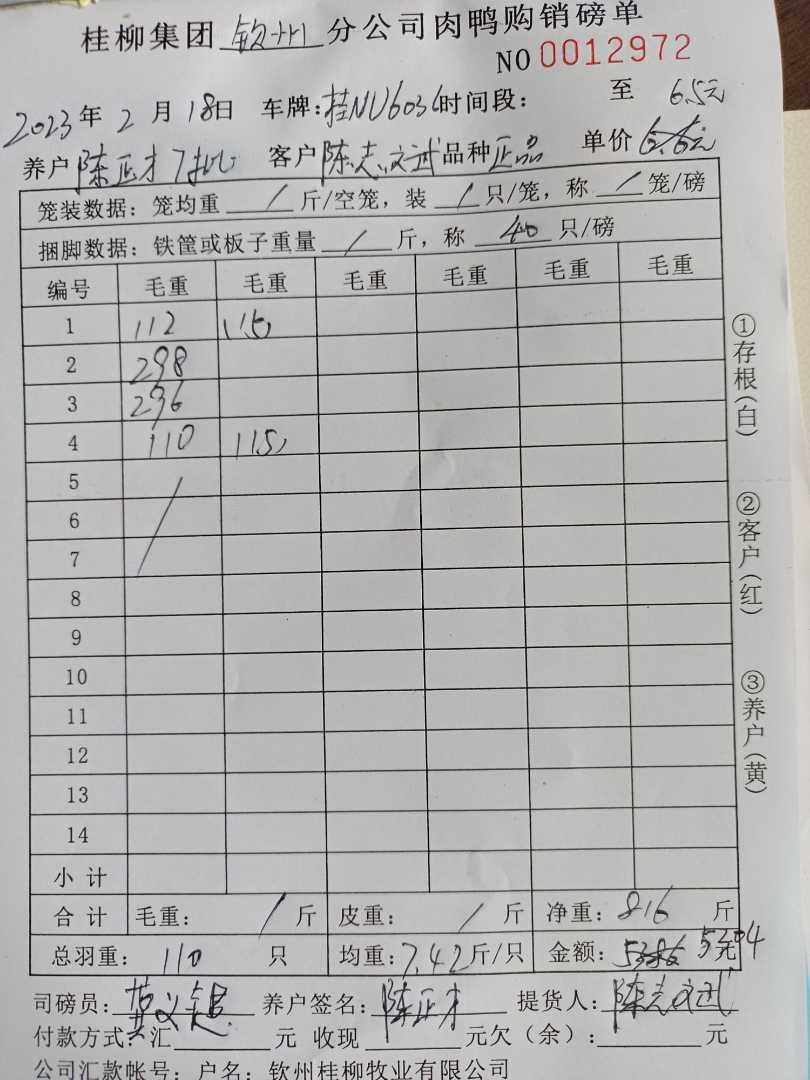 桂柳集团 钦州 分公司肉鸭购销磅单
NO 0012972
2023年 2 月 18日 车牌:桂NU6036 时间段: 至 6.5元
养户 陈正才 客户 陈志斌 品种 正品 单价 6.6元
笼装数据: 笼均重 / 斤/空笼, 装 / 只/笼, 称 / 笼/磅
捆脚数据: 铁筐或板子重量 / 斤, 称 40 只/磅
编号 毛重 毛重 毛重 毛重 毛重 毛重
1 112 115
2 298
3 296
4 110 115
5
6
7
8
9
10
11
12
13
14
小 计
合 计 毛重: / 斤 皮重: / 斤 净重: 816 斤
总羽重: 110 只 均重: 7.42斤/只 金额: 5386 5304 元
司磅员: 养户签名: 陈正才 提货人: 陈志斌
付款方式: 汇 元 收现 元欠(余): 元
公司汇款帐号: 户名: 钦州桂柳牧业有限公司
①存根(白)
②客户(红)
③养户(黄)